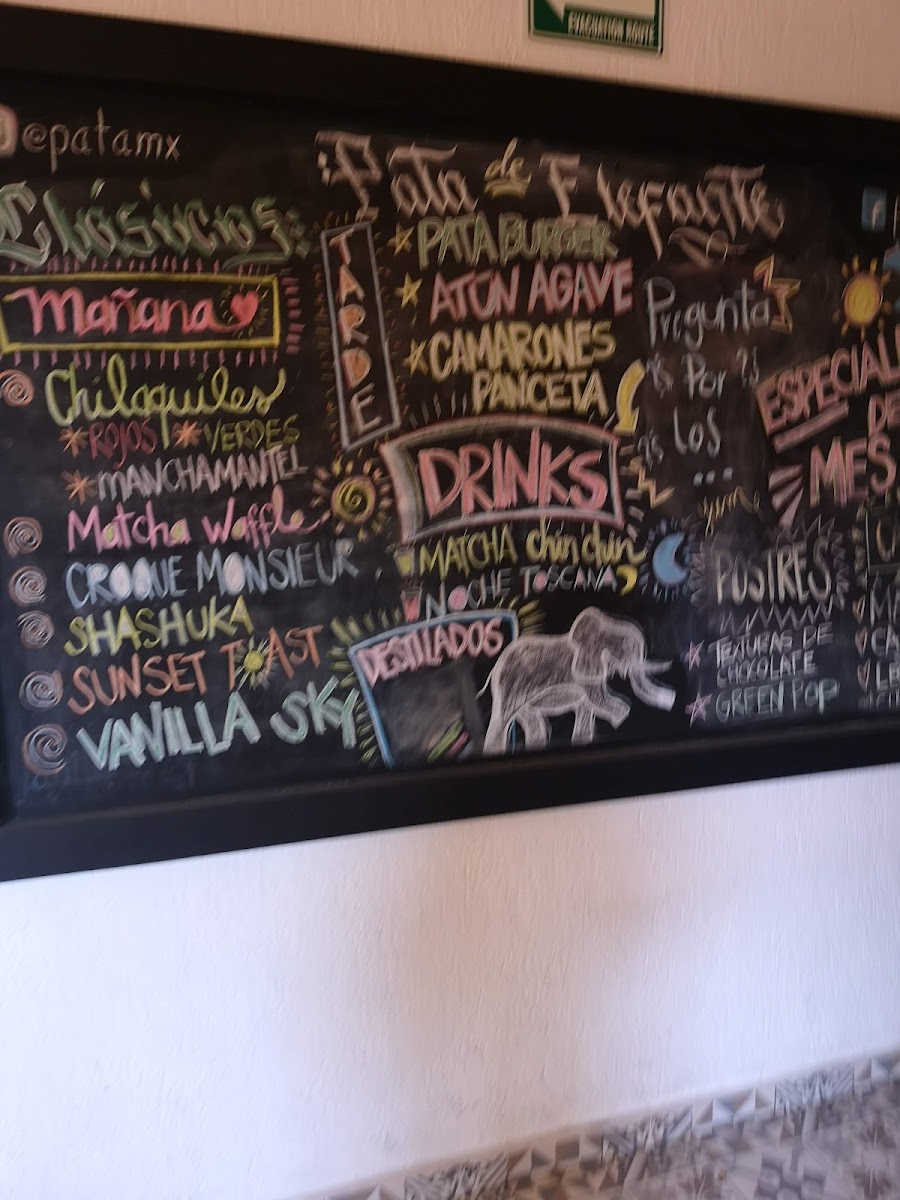 EVACUATION ROUTE
@patamx
Pata de Elefante
Clásicos:
Mañana
Chilaquiles
*ROJOS *VERDES
*MANCHAMANTEL
Matcha Waffle
CROQUE MONSIEUR
SHASHUKA
SUNSET TOAST
VANILLA SKY
TARDE
PATA BURGER
ATÚN AGAVE
CAMARONES
PANCETA
DRINKS
MATCHA chin chin
NOCHE TOSCANA
DESTILADOS
Pregunta
Por
Los
...
POSTRES
TEXTURAS DE
CHOCOLATE
GREEN POP
ESPECIAL
DE
MES